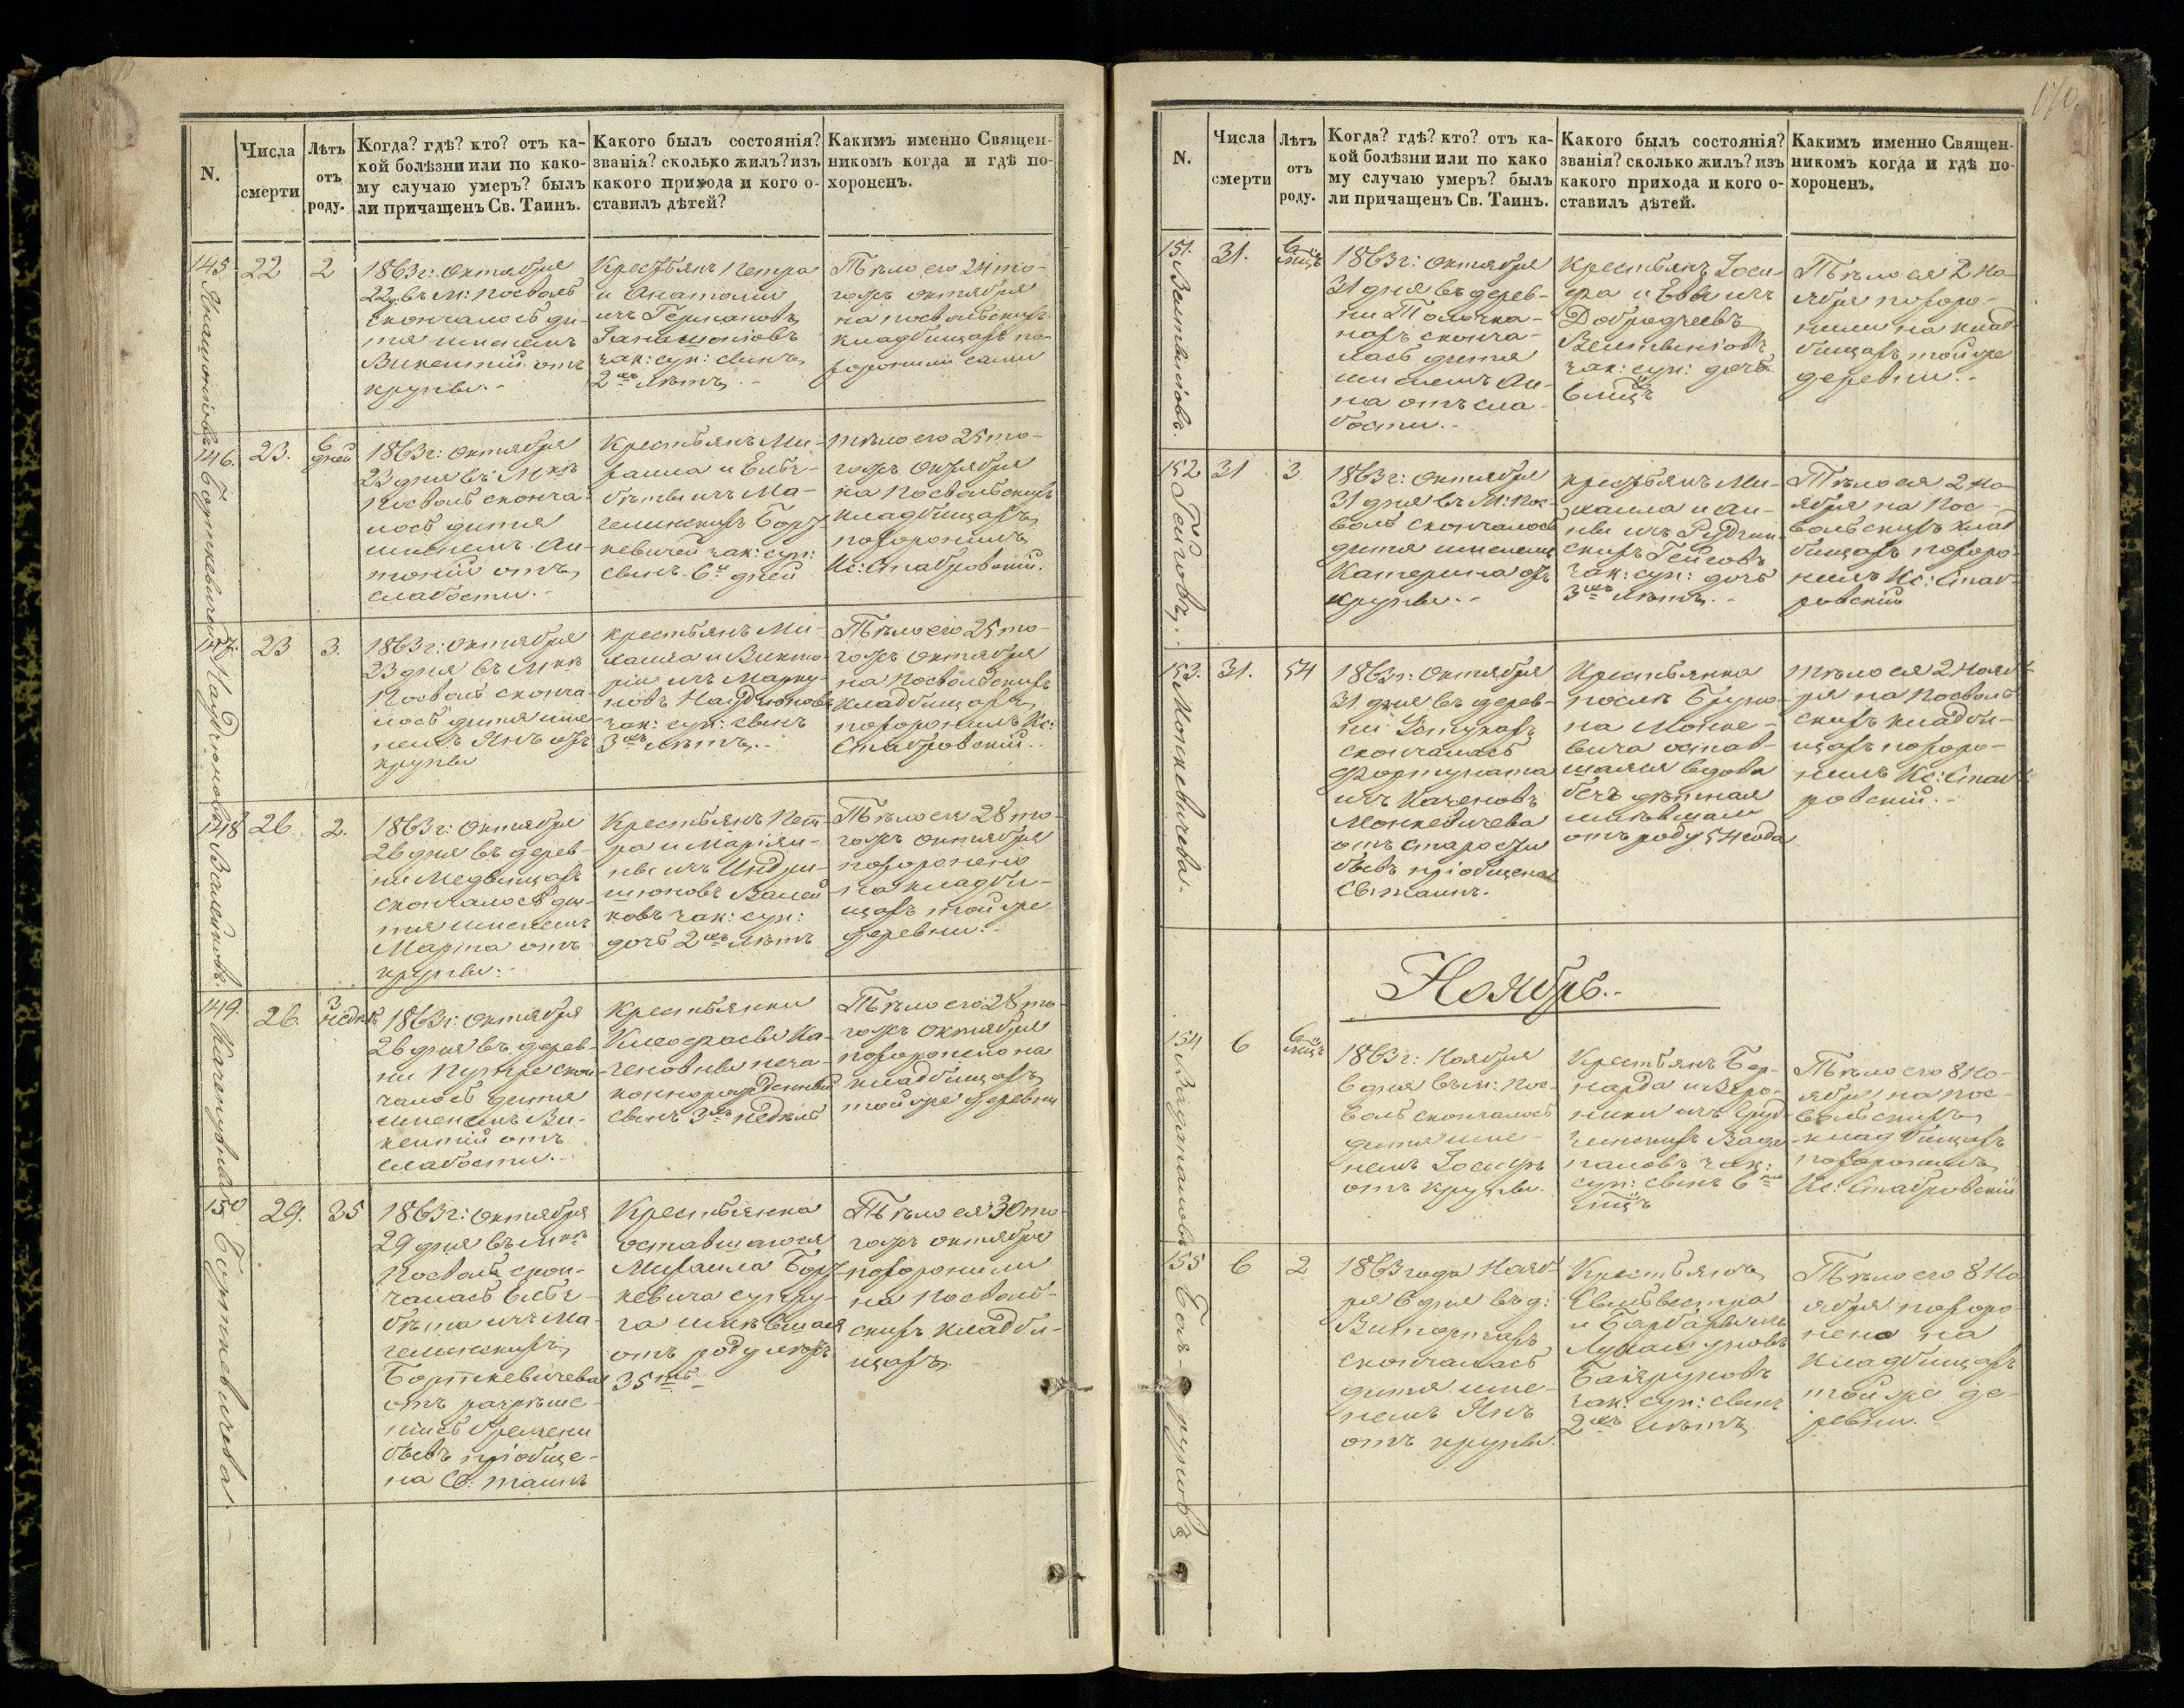 N.
Числа
смерти
Лѣтъ
отъ
роду.
Когда? гдѣ? кто? отъ ка-
кой болѣзни или по како-
му случаю умеръ? былъ
ли причащенъ Св. Таинъ.
Какого былъ состоянія?
званія? сколько жилъ? изъ
какого прихода и кого о-
ставилъ дѣтей?
Какимъ именно Священ-
никомъ когда и гдѣ по-
хороненъ.
145
22
2
1863 г: Октября
22 д. въ М: Посволѣ
скончалось ди-
тя именемъ
Викентій отъ
крупы.-
Крестьянъ Петра
и Анатоліи
изъ Германовъ
зак: суп: сынъ
2хъ лѣтъ.-
Тѣло его 24 то-
гожъ октября
на Посвольскихъ
кладбищахъ по-
хоронили сами
146.
23.
6
дней
1863 г: Октября
23 дня въ Мкѣ
Посволѣ сконча-
лось дитя
именемъ Ан-
тоній отъ
слабости.-
Крестьянъ Ми-
хаила и Елиса-
кевичей зак: суп:
сынъ 6и дней
Тѣло его 25 то-
гожъ Октября
на Посвольскихъ
кладбищахъ
похоронилъ
Кс: Стабровскій.
147.
23
3.
1863 г: Октября
23 дня въ Мкѣ
Посволѣ сконча-
лось дитя име-
немъ Янъ отъ
крупы
Крестьянъ Ми-
хаила и Викто-
ріи изъ Марку-
зак: суп: сынъ
3хъ лѣтъ.-
Тѣло его 25 то-
гожъ Октября
на Посвольскихъ
кладбищахъ
похоронилъ Кс:
Стабровскій.-
148
Валейковъ.
26.
2.
1863 г: Октября
26 дня въ дерев-
ни
скончалось ди-
тя именемъ
Марта отъ
крупы.-
Крестьянъ Пет-
ра и Маріян-
ны изъ Индри-
шюновъ Валей-
ковъ зак: суп:
дочь 2хъ лѣтъ
Тѣло ея 28 то-
гожъ октября
похоронено
на кладби-
щахъ той же
деревни.-
149.
26.
3
недѣл
1863 г: Октября
26 дня въ дерев-
ни скон-
чалось дитя
именемъ Ви-
кентій отъ
слабости.-
Крестьянки
Ка-
ченовны неза-
коннорожденный
сынъ 3хъ недѣль
Тѣло его 28 то-
гожъ Октября
похоронено на
кладбищахъ
той же деревни
150
Борткевичева.-
29.
35
1863 г: Октября
29 дня въ Мкѣ
Посволѣ скон-
чалась Елиса-
бѣта изъ Ма-
Борткевичева
отъ разрѣше-
нія бремени
бывъ пріобще-
на Св: таинъ
Крестьянка
оставшагося
Михаила Борт-
кевича супру-
га имѣвшая
отъ роду лѣтъ
35ть
Тѣло ея 30 то-
гожъ октября
похоронили
на Посволь-
скихъ кладби-
щахъ.
170.
N.
Числа
смерти
Лѣтъ
отъ
роду.
Когда? гдѣ? кто? отъ ка-
кой болѣзни или по како
му случаю умеръ? былъ
ли причащенъ Св. Таинъ.
Какого былъ состоянія?
званія? сколько жилъ? изъ
какого прихода и кого о-
ставилъ дѣтей.
Какимъ именно Священ-
никомъ когда и гдѣ по-
хороненъ.
151.
31.
6
мцъ
1863 г: Октября
31 дня въ дерев-
ни
сконча-
лась дитя
именемъ Ан-
на отъ сла-
бости.-
Крестьянъ Іоси-
фа и Евы изъ
зак: суп: дочь
6 мцъ
Тѣло ея 2 Но-
ября похоро-
нили на клад-
бищахъ той же
деревни.-
152
31
3
1863 г: Октября
31 дня въ М: Пос-
волѣ скончалось
дитя именемъ
Катерина отъ
крупы.-
Крестьянъ Ми-
хаила и Ан-
ны изъ
зак: суп: дочь
3хъ лѣтъ.-
Тѣло ея 2 Но-
ября на Пос-
вольскихъ клад
бищахъ похоро-
нилъ Кс: Стаб-
ровскій
153.
Монкевичева.
31.
54
1863 г: Октября
31 дня въ дерев-
ни
скончалась
Фортуната
изъ Каченовъ
Монкевичева
отъ старости
бывъ пріобщена
Св: таинъ.
Крестьянка
послѣ Бруно-
на Монке-
вича остав-
шаяся вдова
бездѣтная
имѣвшая
отъ роду 54 года
Тѣло ея 2 Нояб-
ря на Посволь-
скихъ кладби-
щахъ похоро-
нилъ Кс: Стаб-
ровскій.-
Ноябрь.-
154
6
6
мцъ
1863 г: Ноября
6 дня въ М: Пос-
волѣ скончалось
дитя име-
немъ Іосифъ
отъ крупы.
Крестьянъ Бер-
нарда и Веро-
ники изъ
зак:
суп: сынъ 6ти
мцъ
Тѣло его 8 Но-
ября на Пос-
вольскихъ
кладбищахъ
похоронилъ
Кс: Стабровскій
155
6
2
1863 года Нояб
ря 6 дня въ д:
скончалась
дитя име-
немъ Янъ
отъ крупы.
Крестьянъ
Сильвестра
и Барбары изъ
зак: суп: сынъ
2хъ лѣтъ
Тѣло его 8 Но
ября похоро-
нено на
кладбищахъ
той же де-
ревни.-